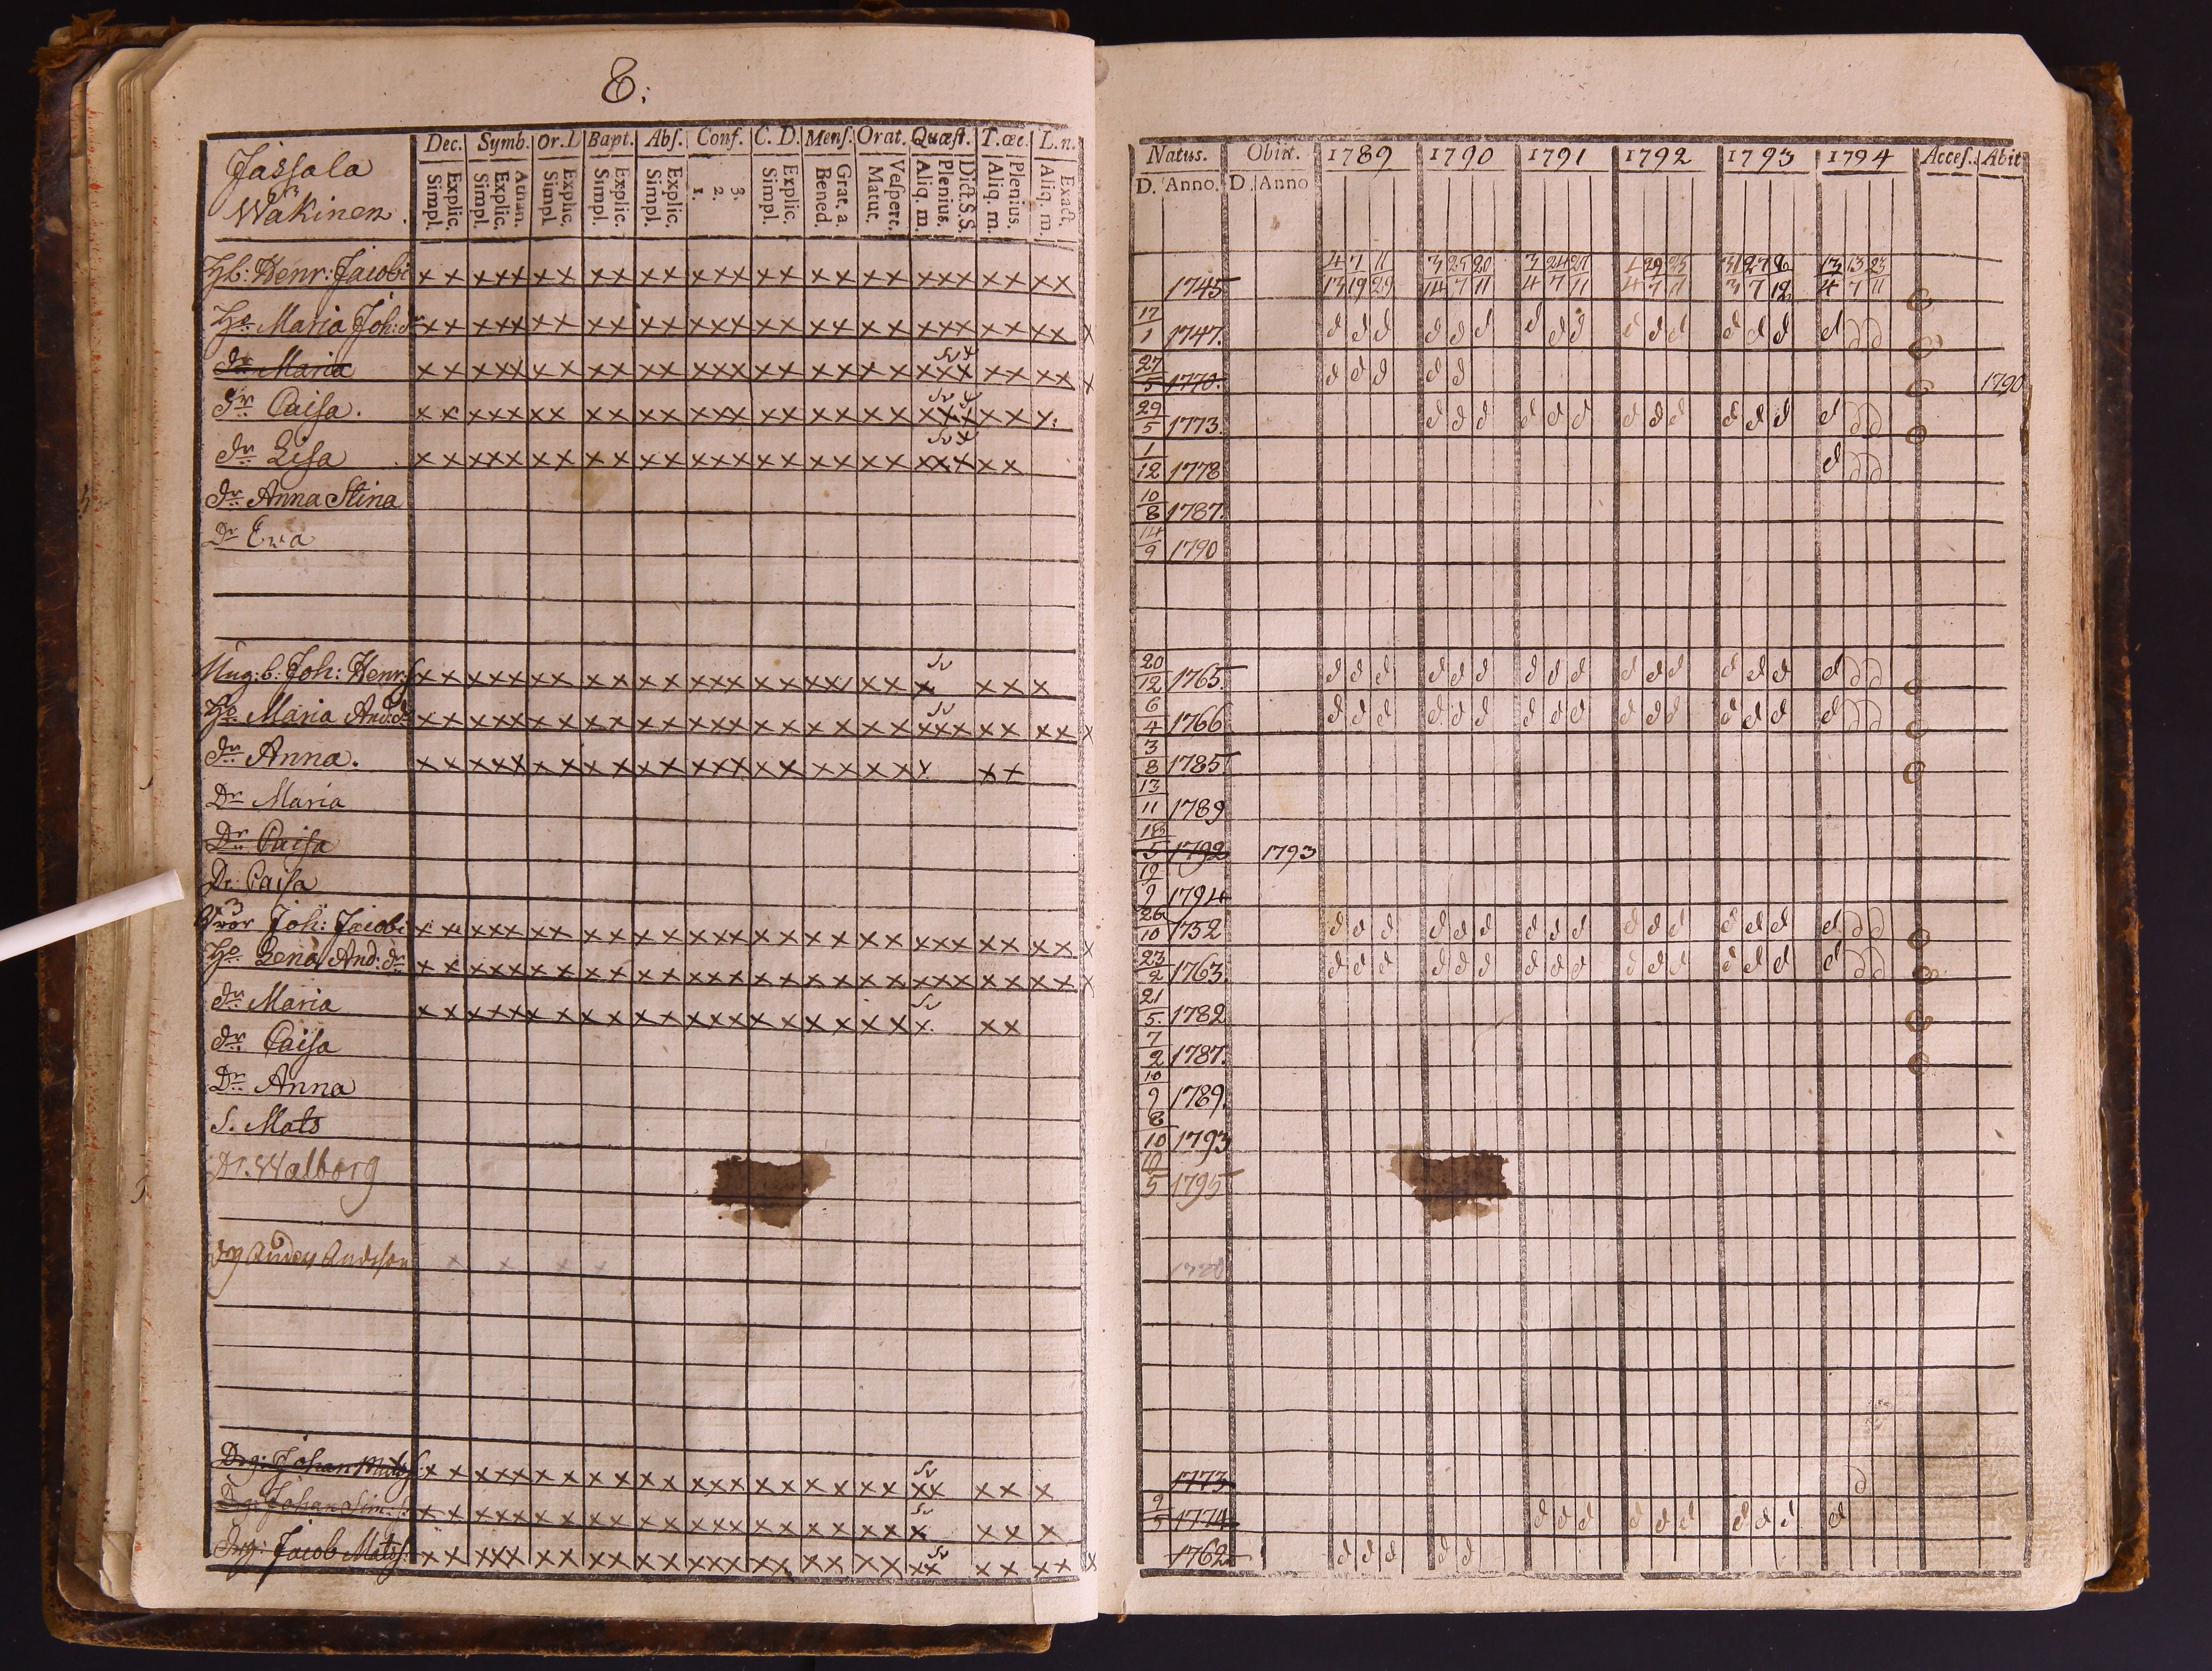 8:
Jassala
Wäkinen.
Dec. Symb. Or. D Bapt. Abs. Conf. C. D. Mens. Orat. Quæst. T. œc. L. n.
Explic. Simpl. Athan. Explic. Simpl. Explic. Simpl Explic. Simpl. Explic. Simpl. 3. 2. 1. Explic. Simpl. Grat. a. Bened. Vespert. Matut. Dict. S.S. Plenius. Aliq. m. Plenius. Aliq. m. Exact. Aliq. m.
Natus. Obiit. 1789 1790 1791 1792 1793 1794 Acces. Abit
D. Anno. D. Anno
4 7 11 3 25 20 3 24 27
13 19 29 14 7 11 4 7 11 4 7 11 3 7 12 4 7 11
Hb: Henr: Jacobi 1745
Ho Maria Joh: dr 17/1 1747.
dr Maria 27/5 1770. 1790
dr Caisa. 29/5 1773.
dr Lisa 1/12 1778
dr Anna Stina 10/8 1787.
Dr Eva 14/9 1790
Ung: b: Joh: Henr: 20/12 1765.
Ho Maria And: dr 6/4 1766
dr Anna. 3/8 1785
Dr Maria 13/11 1789
Dr Caisa 18/5 1792 1793
Dr: Caisa 12/9 1794
Joh: Jacobi 26/10 1752
Ho Lena And: dr 23/2 1763.
dr Maria 21/5. 1782
dr Caisa 7/2 1787.
Dr Anna 10/9 1789.
S. Mats 8/10 1793
Dr. Walborg 10/5 1795
Drg: Johan Mats 1773
Dg: Johan Sim: s. 9/5 1774
Drg: Jacob Matss: 1762